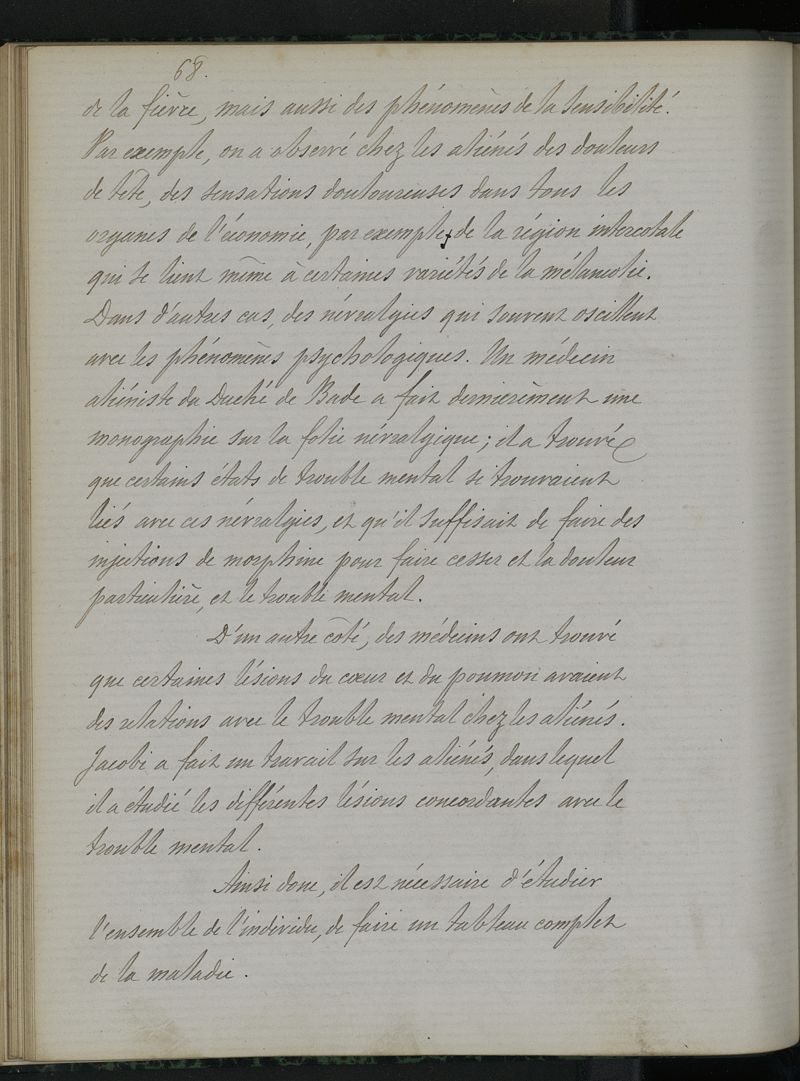 68.
de la fièvre, mais aussi des phénomènes de la sensibilité.
Par exemple, on a observé chez les aliénés des douleurs
de tête, des sensations douloureuses dans tous les
organes de l'économie, par exemple, de la région intercotale
qui se lient même à certaines variétés de la mélancolie.
Dans d'autres cas, des névralgies qui souvent oscillent
avec les phénomènes psychologiques. Un médecin
aliéniste du Duché de Bade a fait dernièrement une
monographie sur la folie névralgique; il a trouvé
que certains états de trouble mental se trouvaient
liés avec ces névralgies, et qu'il suffisait de faire des
injections de morphine pour faire cesser et la douleur
particulière, et le trouble mental.
D'un autre côté, des médecins ont trouvé
que certaines lésions du cœur et du poumon avaient
des relations avec le trouble mental chez les aliénés.
Jacobi a fait un travail sur les aliénés, dans lequel
il a étudié les différentes lésions concordantes avec le
trouble mental.
Ainsi donc, il est nécessaire d'étudier
l'ensemble de l'individu, de faire un tableau complet
de la maladie.